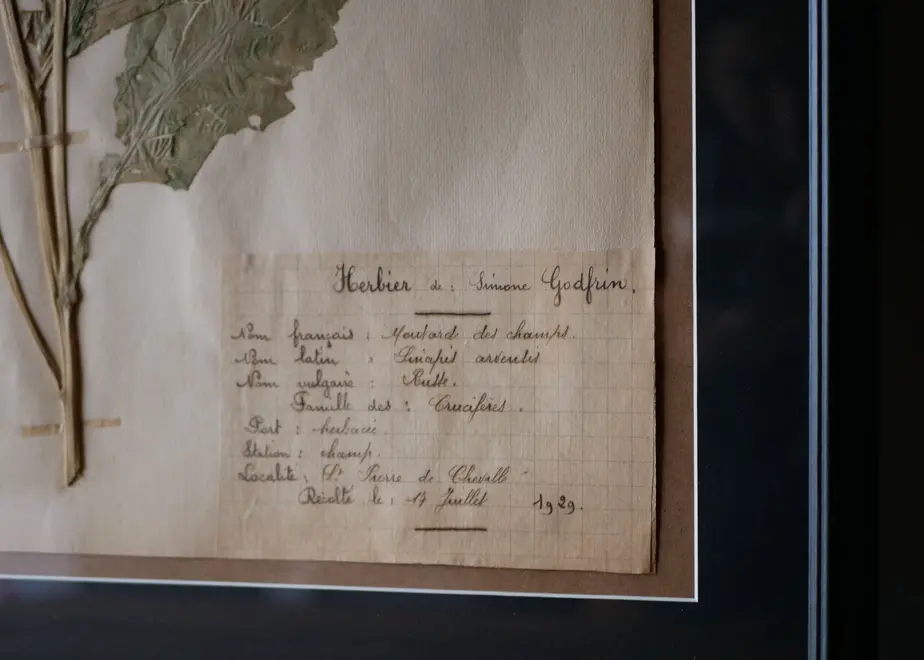 Herbier de : Simone Godfrin.
Nom français : Moutarde des champs.
Nom latin : Sinapis arventis
Nom vulgaire : Russe.
Famille des : Crucifères.
Port : herbacé.
Station : champ.
Localité : St Pierre de Chevillé
Récolté le : 17 Juillet 1929.